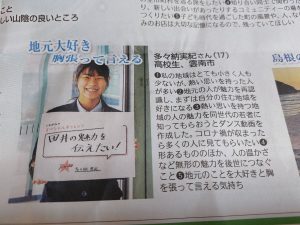 しい山陰の良いところ
地元大好き
胸張って言える
田井の魅力を
伝えたい!
多々納実紀さん(17)
高校生、雲南市
❶私の地域はとても小さく人も
少ないが、熱い思いを持った人
が多い❷地元の人が魅力を再認
識し、まずは自分の住む地域を
好きになる❸熱い思いを持つ地
域の人の魅力を同世代の若者に
知ってもらおうとダンス動画を
作成した。コロナ禍が収まった
ら多くの人に見てもらいたい❹
形あるもののほか、人の温かさ
など無形の魅力を後世につなぐ
こと❺地元のことを大好きと胸
を張って言える気持ち
島根の